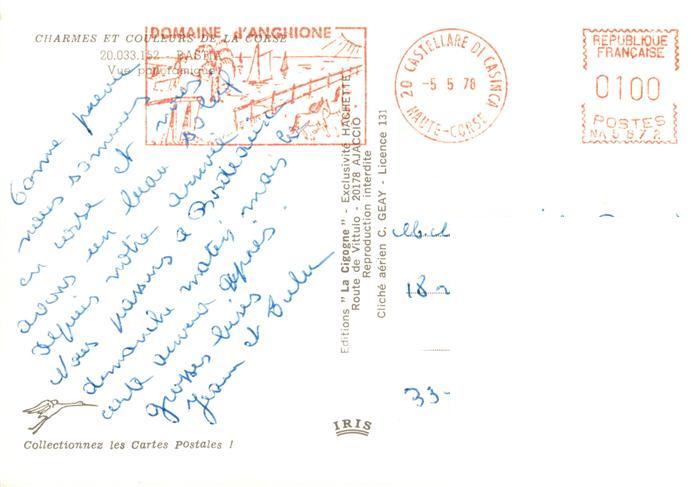 CHARMES ET COULEURS DE LA CORSE
20.033.152 - BASTIA
Vue panoramique
DOMAINE D'ANGHIONE
20 CASTELLARE DI CASINCA
-5 5 78
HAUTE-CORSE
REPUBLIQUE
FRANÇAISE
0100
POSTES
NA 5872
Comme prévu
nous sommes
en corse et nous
avons un beau soleil
depuis notre arrivée
Nous passons à Bordeaux
dimanche matin, mais la
carte arrivera après.
grosses bises
et
Editions "La Cigogne" - Exclusivité HACHETTE
Route de Vittulo - 20178 AJACCIO
Reproduction interdite
Cliché aérien C. GEAY - Licence 131
18
33-
IRIS
Collectionnez les Cartes Postales !